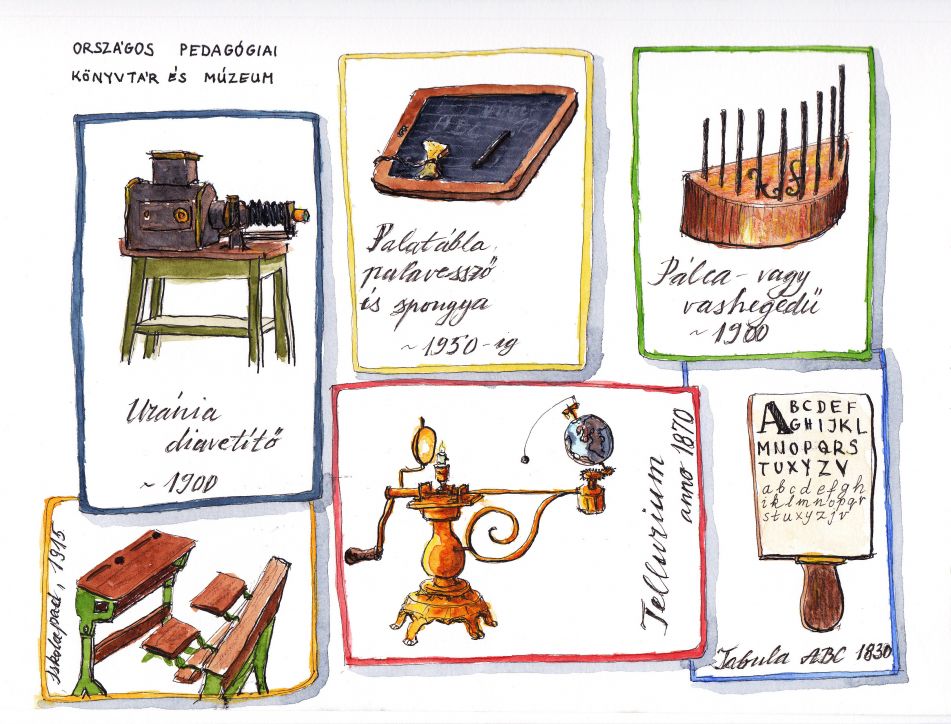 ORSZÁGOS PEDAGÓGIAI
KÖNYVTÁR ÉS MÚZEUM
Uránia
diavetítő
~ 1900
ABC
Palatábla,
palavessző
és spongya
~ 1950-ig
K F
Pálca - vagy
vashegedű
~ 1900
Iskolapad, 1915
Tellurium
anno 1870
ABCDEF
GHIJKL
MNOPQRS
TUXYZV
abcdefgh
iklmnopqr
stuxyzjv
Tabula ABC 1830